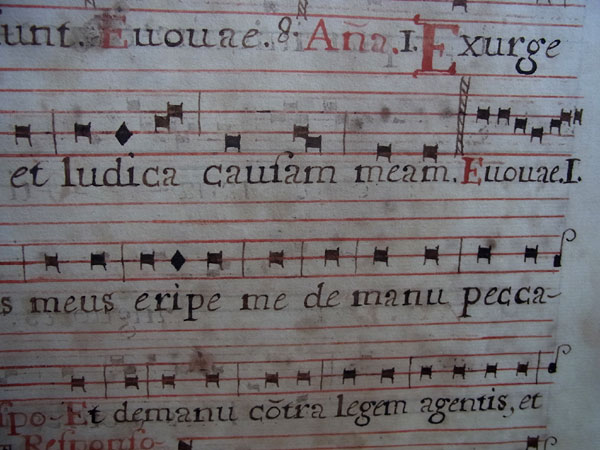 unt. Euouae. 8. Añа. I. Exurge
et Iudica cauſam meam. Euouae. I.
s meus eripe me de manu pecca-
ſpo- Et demanu cõtra legem agentis, et
Reſponſo-